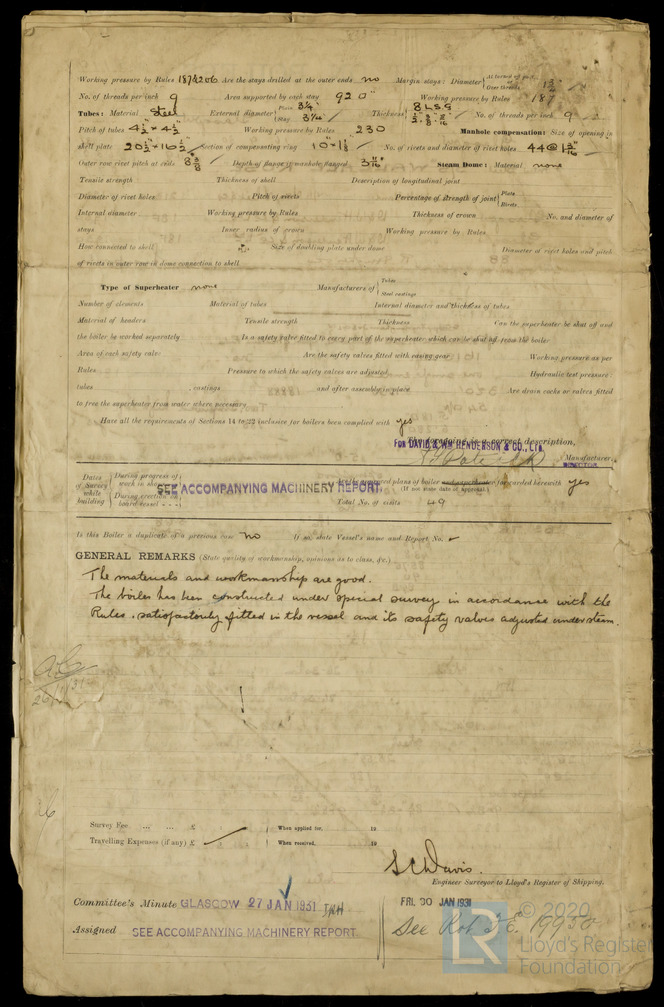 Working pressure by Rules 187 & 206 Are the stays drilled at the outer ends no Margin stays: Diameter
No. of threads per inch 9 Area supported by each stay 920 □" Working pressure by Rules 187
Tubes: Material Steel External diameter Plain 3¼" Stay 3¼" Thickness 8 L.S.G No. of threads per inch 9
Pitch of tubes 4½" × 4½" Working pressure by Rules 230 Manhole compensation: Size of opening in
shell plate 20½" × 16½" Section of compensating ring No. of rivets and diameter of rivet holes 44 @
Outer row rivet pitch at ends Depth of flange if manhole flanged Steam Dome: Material none
Tensile strength Thickness of shell Description of longitudinal joint
Diameter of rivet holes Pitch of rivets Percentage of strength of joint Plate Rivets
Internal diameter Working pressure by Rules Thickness of crown No. and diameter of
stays Inner radius of crown Working pressure by Rules
How connected to shell Size of doubling plate under dome Diameter of rivet holes and pitch
of rivets in outer row in dome connection to shell
Type of Superheater none Manufacturers of Tubes Steel castings
Number of elements Material of tubes Internal diameter and thickness of tubes
Material of headers Tensile strength Thickness Can the superheater be shut off and
the boiler be worked separately Is a safety valve fitted to every part of the superheater which can be shut off from the boiler
Area of each safety valve Are the safety valves fitted with easing gear Working pressure as per
Rules Pressure to which the safety valves are adjusted Hydraulic test pressure
tubes , castings and after assembly in place Are drain cocks or valves fitted
to free the superheater from water where necessary
Have all the requirements of Sections 14 to 22 inclusive for boilers been complied with yes
The foregoing is a correct description,
FOR DAVID & WM HENDERSON & CO., LTD.
Manufacturer.
DIRECTOR
Dates of Survey while building During progress of work in shops - - During erection on board vessel - - - SEE ACCOMPANYING MACHINERY REPORT. Are the approved plans of boiler and superheater forwarded herewith yes
(If not state date of approval.)
Total No. of visits 49
Is this Boiler a duplicate of a previous case no If so, state Vessel's name and Report No.
GENERAL REMARKS (State quality of workmanship, opinions as to class, &c.)
The materials and workmanship are good.
The boiler has been constructed under special survey in accordance with the
Rules, satisfactorily fitted in the vessel and its safety valves adjusted under steam.
Survey Fee ... ... £ When applied for, 19
Travelling Expenses (if any) £ When received, 19
S C Davis.
Engineer Surveyor to Lloyd's Register of Shipping.
Committee's Minute GLASGOW 27 JAN 1931 FRI. 30 JAN 1931
Assigned SEE ACCOMPANYING MACHINERY REPORT.
© 2020
Lloyd's Register
Foundation
LR